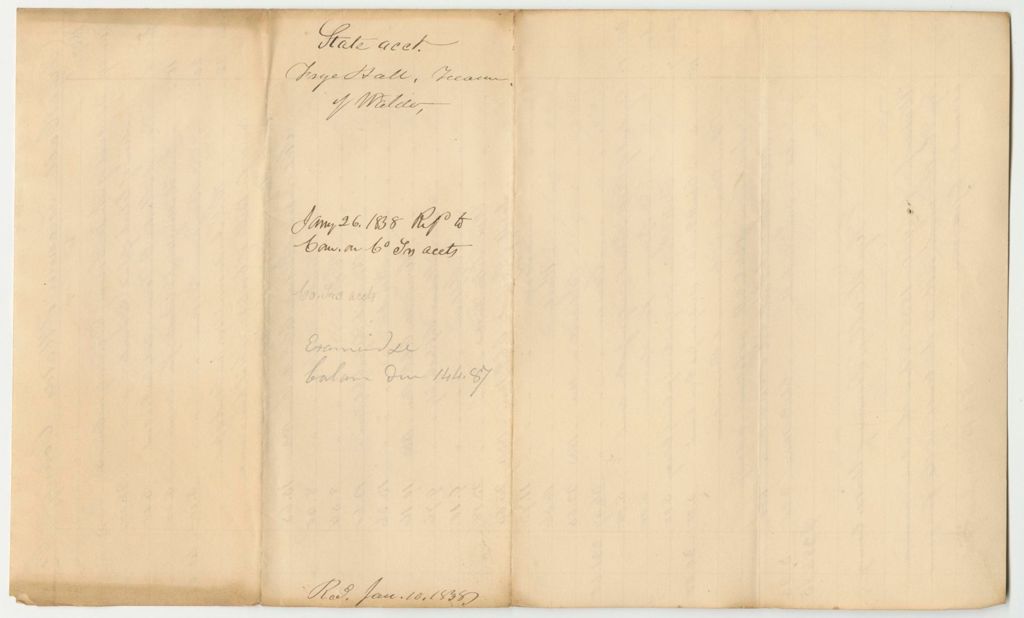 State acct.
Frye Hall, Treasur.
of Waldo,
Jany 26. 1838 Refd to
Com. on Co Trs accts
Co. Trs accts
Examined &
balance due 144.87
Recd. Jan. 10. 1838